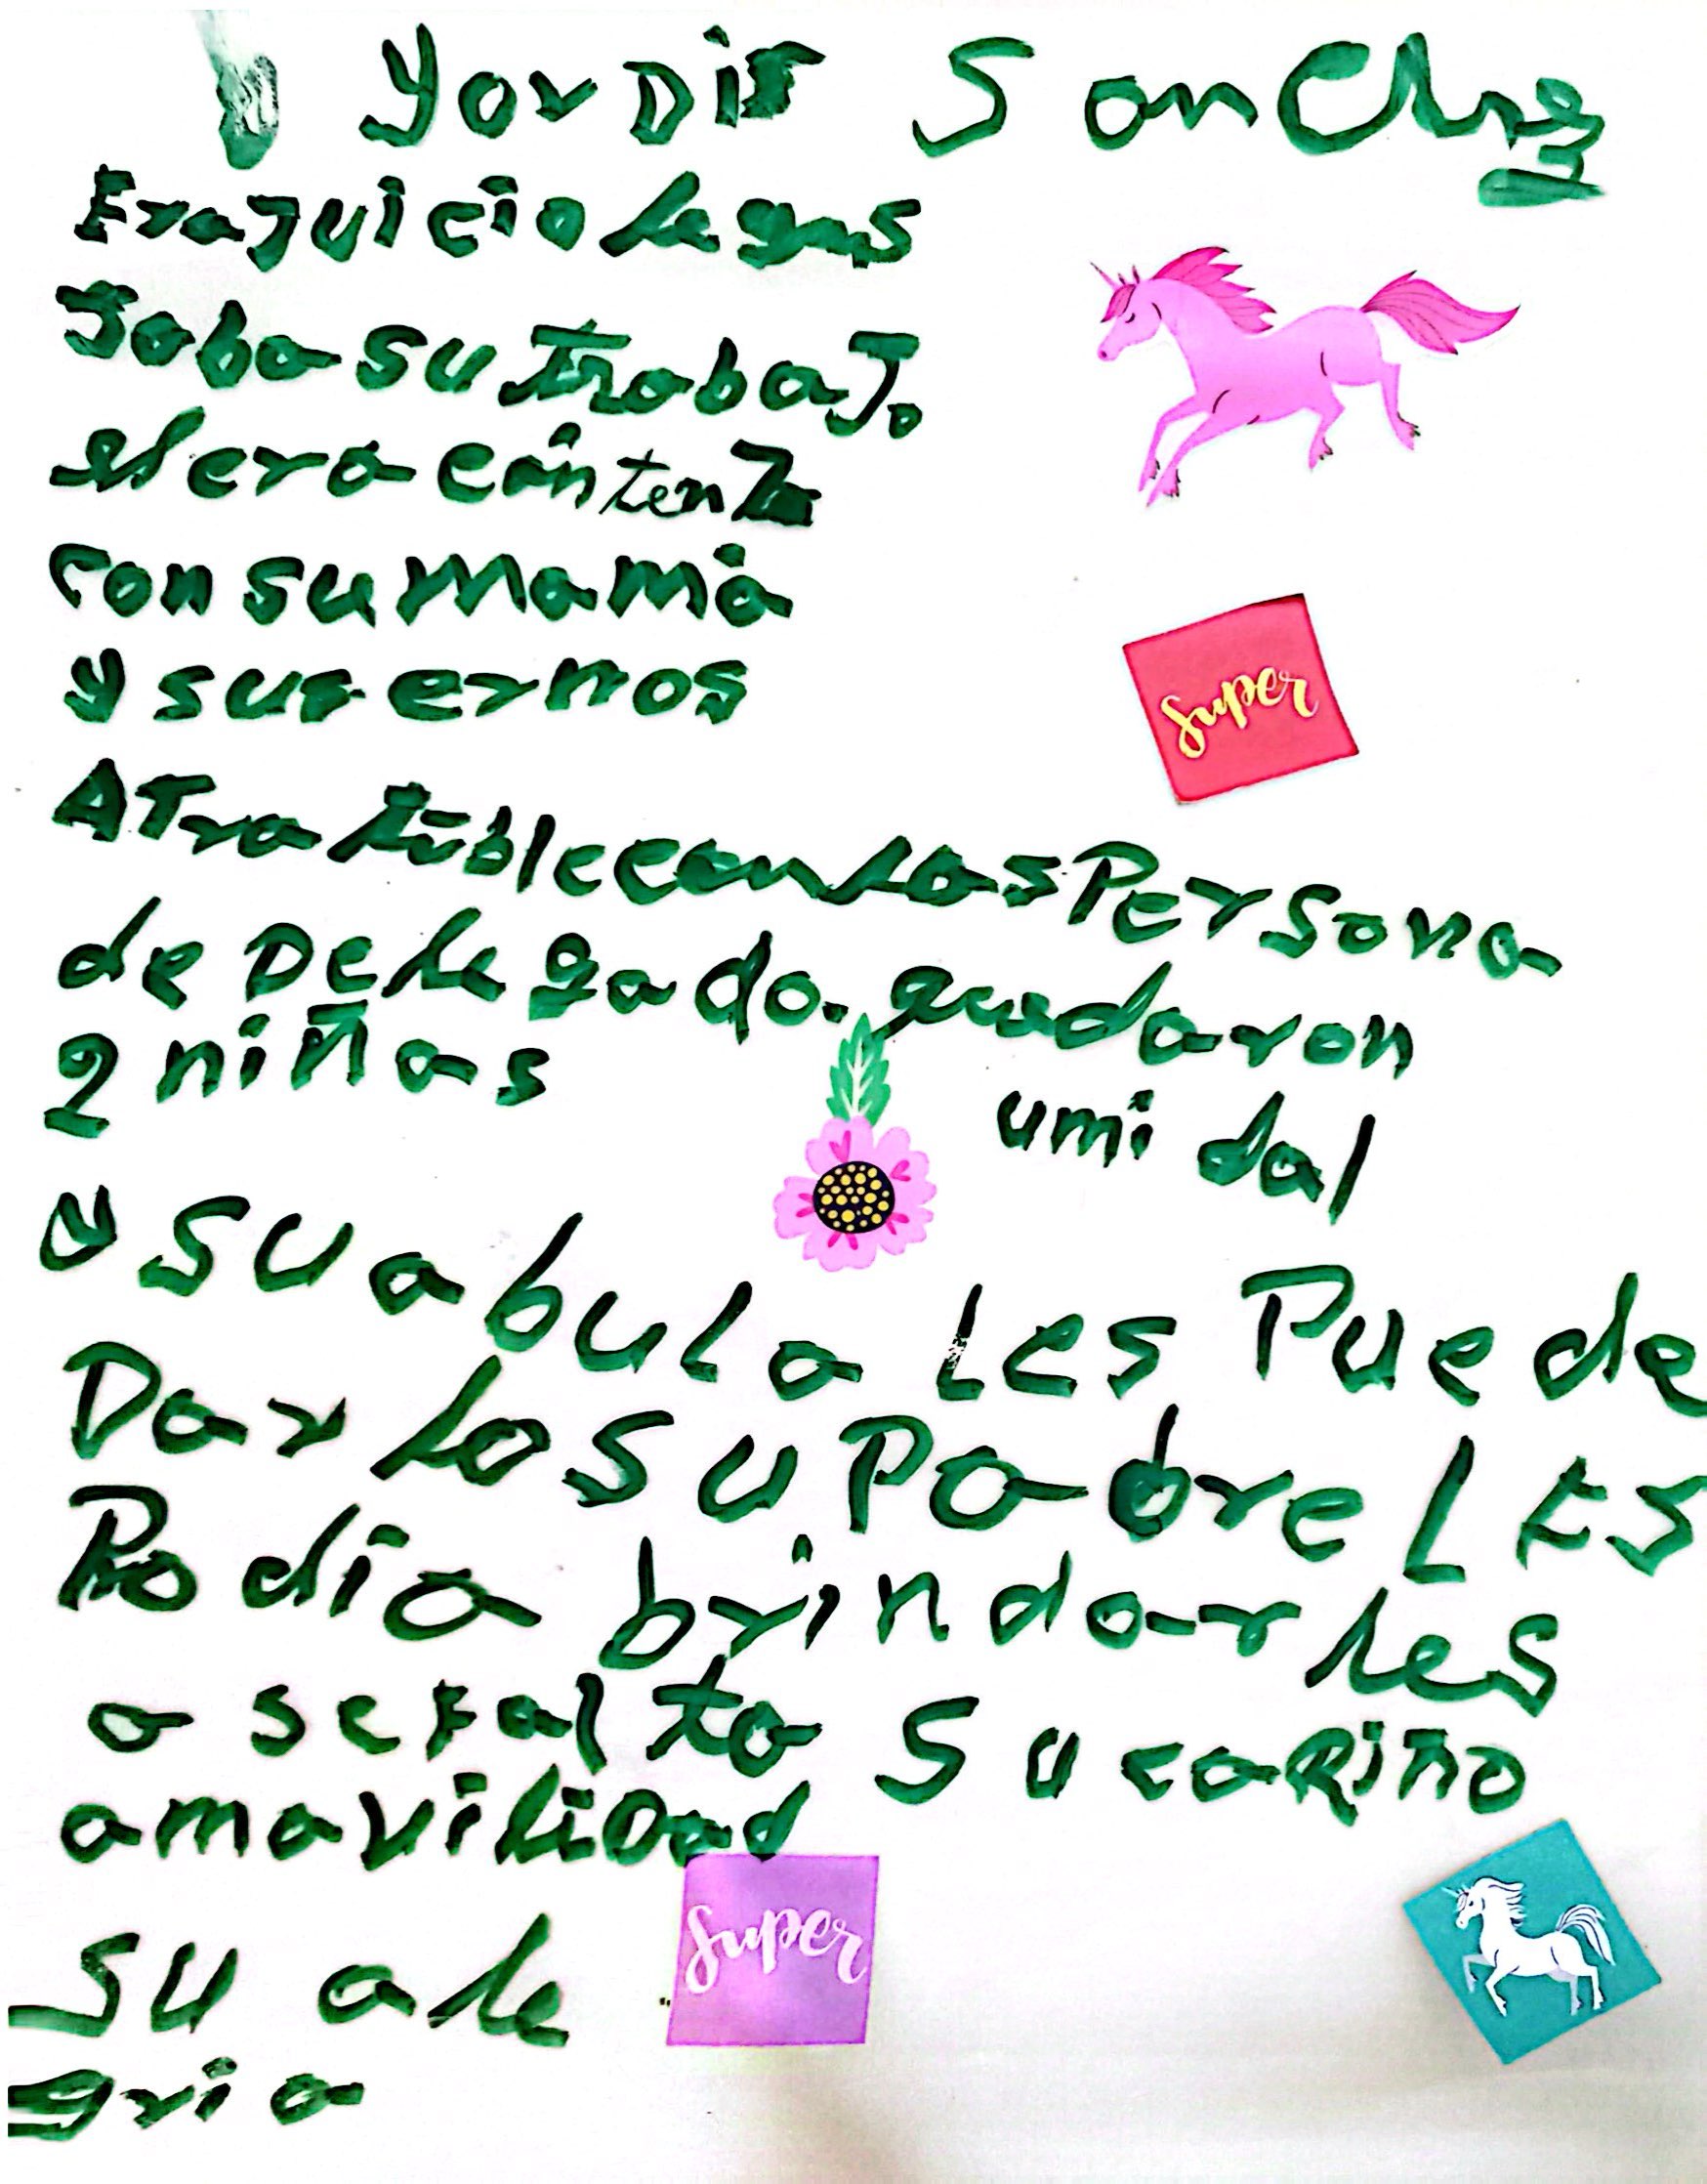 yordis Sanchez
Erajuicio le gus
Taba su trabajo
el era contento
con su mamá
y sus ermos
Atratible con las Persona
de Delegado. quedaron
2 niñas
umi dal
y su abula les Puede
Dar lo su Padre LES
Podia brindarles
a se falta su cariño
amavilidad
su ale
gria
Super
Super